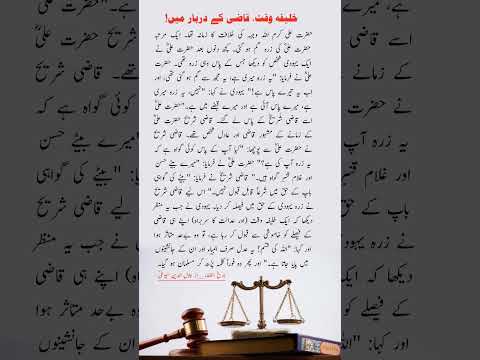 خلیفہ وقت، قاضی کے دربار میں!
حضرت علی کرم اللہ وجہہ کی خلافت کا زمانہ تھا۔ ایک مرتبہ
حضرت علیؓ کی زرہ گم ہو گئی۔ کچھ دنوں بعد حضرت علیؓ نے
ایک یہودی شخص کو دیکھا جس کے پاس وہی زرہ تھی۔ حضرت
علیؓ نے فرمایا: "یہ زرہ میری ہے، یہ مجھ سے گم ہو گئی تھی، اور
اب یہ تیرے پاس ہے!" یہودی نے کہا: "نہیں، یہ زرہ میری
ہے، میرے پاس آئی ہے اور میرے قبضے میں ہے۔" حضرت علیؓ
اسے قاضی شریحؒ کے پاس لے گئے۔ قاضی شریح حضرت علیؓ
کے زمانے کے مشہور قاضی اور عادل شخص تھے۔ قاضی شریح
نے حضرت علیؓ سے پوچھا: "کیا آپ کے پاس کوئی گواہ ہے کہ
یہ زرہ آپ کی ہے؟" حضرت علیؓ نے فرمایا: "میرے بیٹے حسن
اور غلام قنبر گواہ ہیں۔" قاضی شریح نے فرمایا: "بیٹے کی گواہی
باپ کے حق میں شرعاً قابل قبول نہیں۔" اس لیے قاضی شریح
نے زرہ یہودی کے حق میں فیصلہ کر دیا۔ یہودی نے جب یہ منظر
دیکھا کہ ایک خلیفہ وقت (اور عدالت کا سربراہ) اپنے ہی قاضی
کے فیصلے کو خاموشی سے قبول کر رہا ہے، تو وہ بے حد متاثر ہوا
اور کہا: "اللہ کی قسم! یہ عدل صرف انبیاء اور ان کے جانشینوں
میں پایا جاتا ہے۔" اور پھر وہ فوراً کلمہ پڑھ کر مسلمان ہو گیا۔